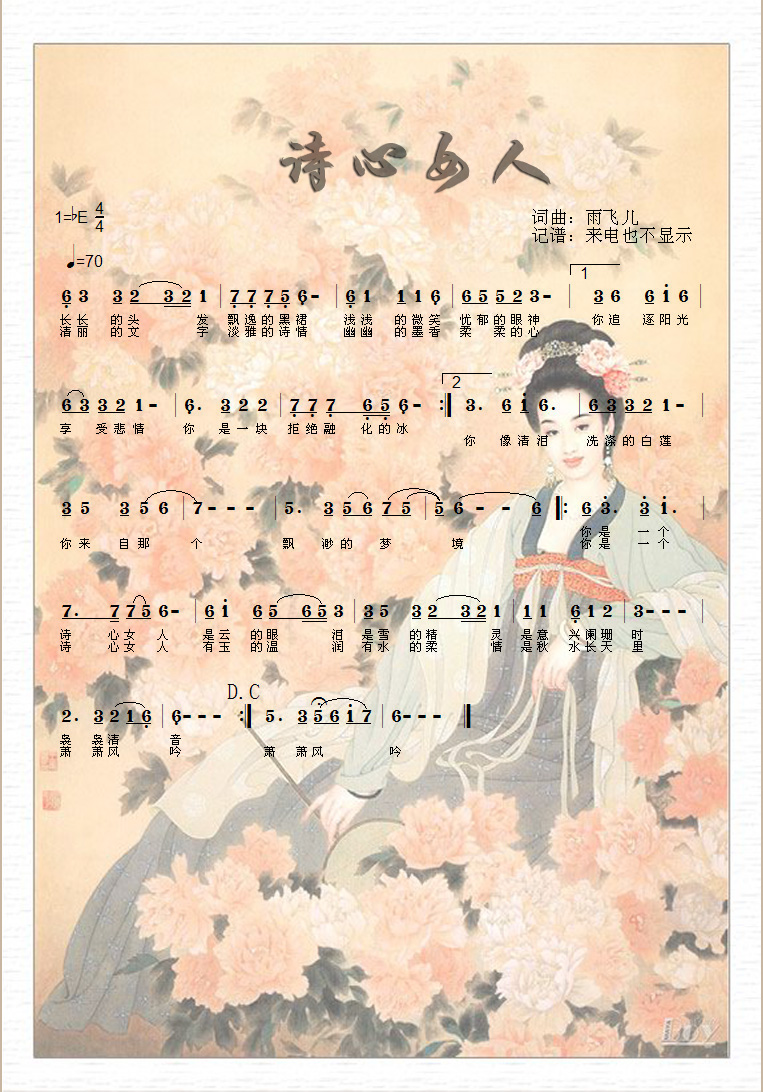 诗心女人
1=♭E 4/4
词曲：雨飞儿
记谱：来电也不显示
♩=70
1
6 3 3 2 3 2 1 | 7 7 7 5 6 - | 6 1 1 1 6 | 6 5 5 2 3 - | 3 6 6 1 6 |
长长 的头 发 飘逸的黑裙 浅浅 的微笑 忧郁的眼神 你追 逐阳光
清丽 的文 字 淡雅的诗情 幽幽 的墨香 柔 柔的心
2
6 3 3 2 1 - | 6. 3 2 2 | 7 7 7 6 5 6 - :| 3. 6 1 6. | 6 3 3 2 1 - |
享 受悲情 你 是一块 拒绝融 化的冰
你 像清泪 洗涤的白莲
3 5 3 5 6 | 7 - - - | 5. 3 5 6 7 5 | 5 6 - - 6 |: 6 3. 3 1. |
你是 一个
你来 自那 个 飘 渺的 梦 境 你是 一个
7. 7 7 5 6 - | 6 1 6 5 6 5 3 | 3 5 3 2 3 2 1 | 1 1 6 1 2 | 3 - - - |
诗 心女 人 是云 的眼 泪 是雪 的精 灵 是意 兴阑珊 时
诗 心女 人 有玉 的温 润 有水 的柔 情 是秋 水长天 里
D.C
2. 3 2 1 6 | 6 - - - :| 5. 3 5 6 1 7 | 6 - - - |
袅 袅清 音
萧 萧风 吟 萧 萧风 吟